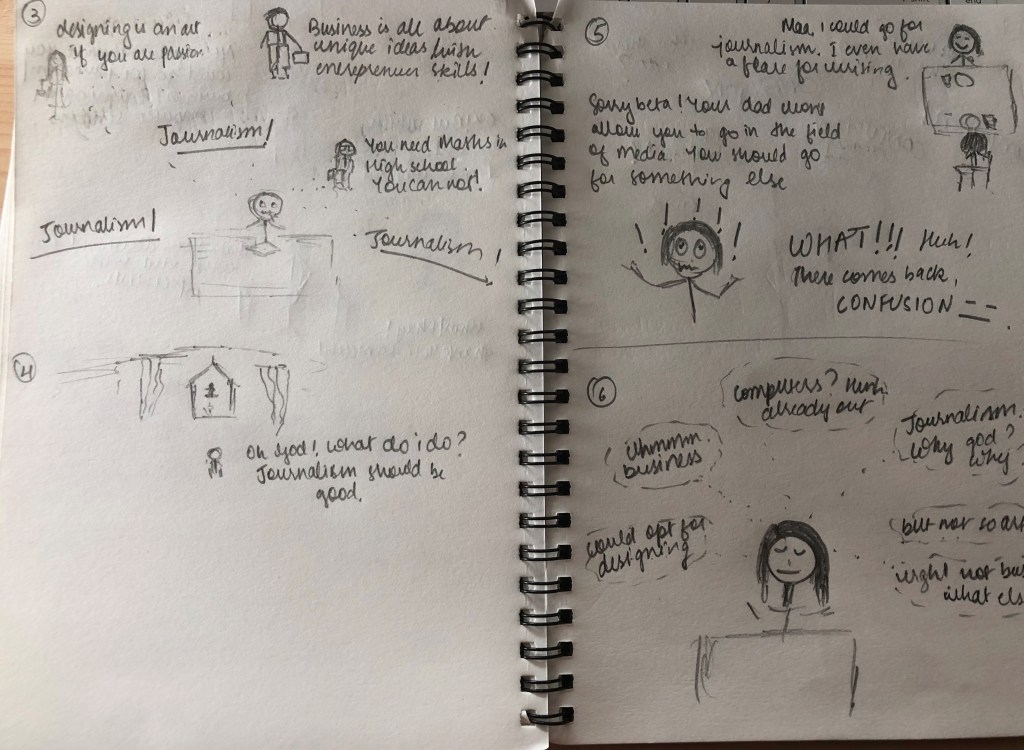 3
designing is an art.
If you are passion
Business is all about
unique ideas huih
enreprenuer skills!
Journalism!
You need Maths in
High school.
You can not!
Journalism!
Journalism!
4
Oh God! What do i do?
Journalism should be
good.
5
Maa, I could go for
journalism. I even have
a flare for writing.
Sorry beta! Your dad wont
allow you to go in the field
of media. You should go
for something else
WHAT!!! Huh!
There comes back,
CONFUSION
6
computers? Huh
already out
Uhmmm.
business
Journalism.
Why god?
Why
could opt for
designing
but not so art
urgh! not bus
what els